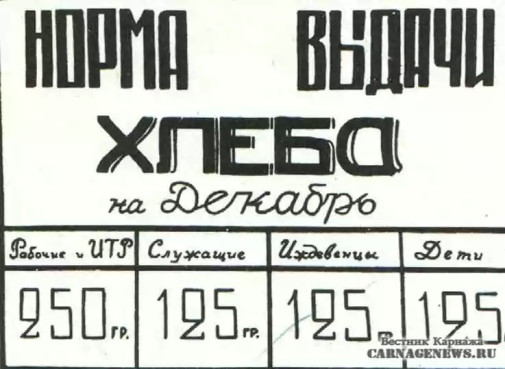 НОРМА ВЫДАЧИ
ХЛЕБА
на Декабрь
Рабочие и ИТР Служащие Иждевенцы Дети
250 гр. 125 гр. 125 г 125
Вестник Карнажа
CARNAGENEWS.RU